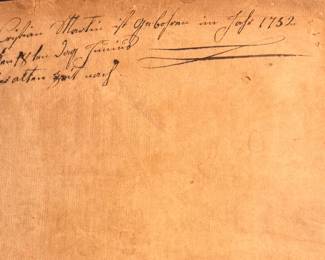 Christian Martin ist Gebohren im Jahr 1752
den 18 ten Dag Junius
alten zeit nach